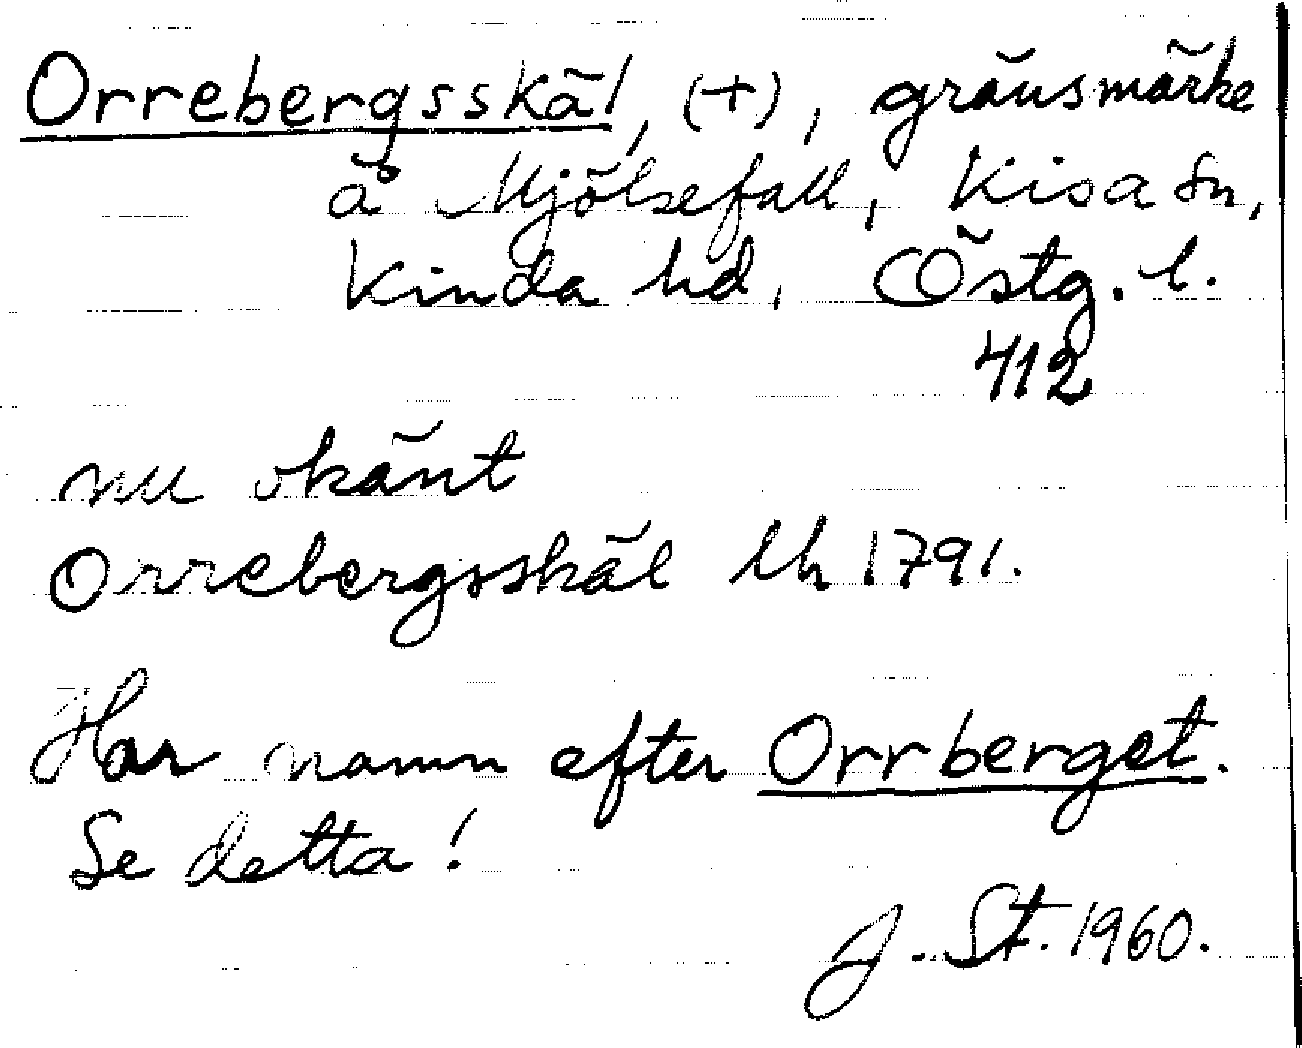 Orrebergsskäl, (+), gränsmärke
å Mjölsefall, Kisa sn,
Kinda hd, Östg. l.
412
nu okänt
Orrebergsskäl lh 1791.
Har namn efter Orrberget.
Se detta!
J. St. 1960.